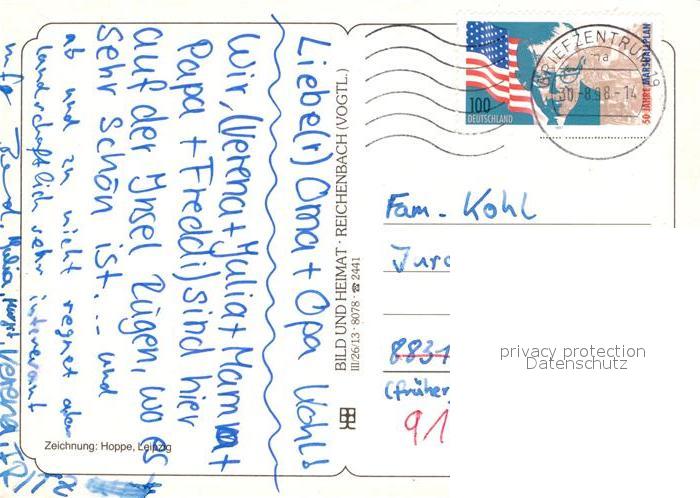 Liebe(r) Oma + Opa Kohl!
Wir, (Verena + Julia + Mama +
Papa + Freddi) sind hier
auf der Insel Rügen, wo es
sehr schön ist... und
ab und zu nicht regnet aber
landschaftlich sehr interessant
Julia, Margit, Verena
Zeichnung: Hoppe, Leipzig
BILD UND HEIMAT · REICHENBACH (VOGTL.)
III/26/13 · 8078 · ☎ 2441
100
DEUTSCHLAND
50 JAHRE MARSHALLPLAN
BRIEFZENTRUM
30.-8.98.-14
Fam. Kohl
8831
(früher
91
privacy protection
Datenschutz